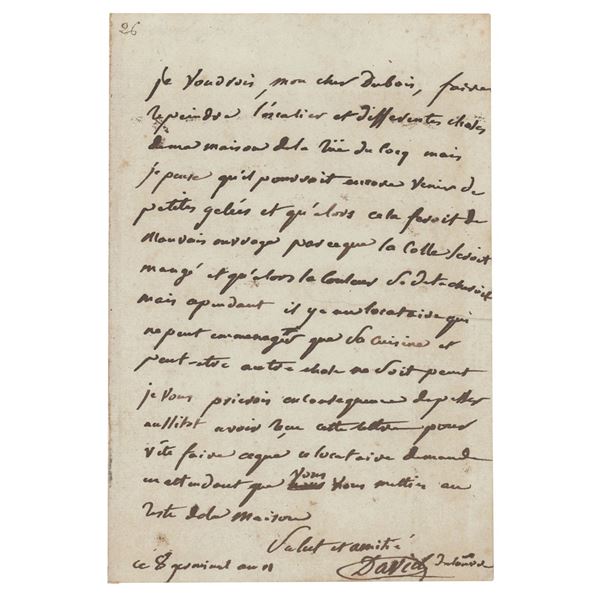 26
je voudrois, mon cher Dubois, faire
repeindre l'escalier et differentes choses
de ma maison de la rüe du Cocq mais
je pense qu'il pourroit encore venir de
petites gelées et qu'alors cela feroit de
mauvais ouvrage parceque la Colle seroit
mangé et qu'alors la couleur se detacheroit
mais cependant il y a un locataire qui
ne peut emmenager que sa cuisine et
peut-etre autre chose ne soit peint
je vous prierois en consequence de passer
aussitot avoir reçue cette lettre pour
vite faire ceque ce locataire demande
en attendant que vous vous mettiez au
reste de la maison
Salut et amitié
ce 8 germinal an 11 David